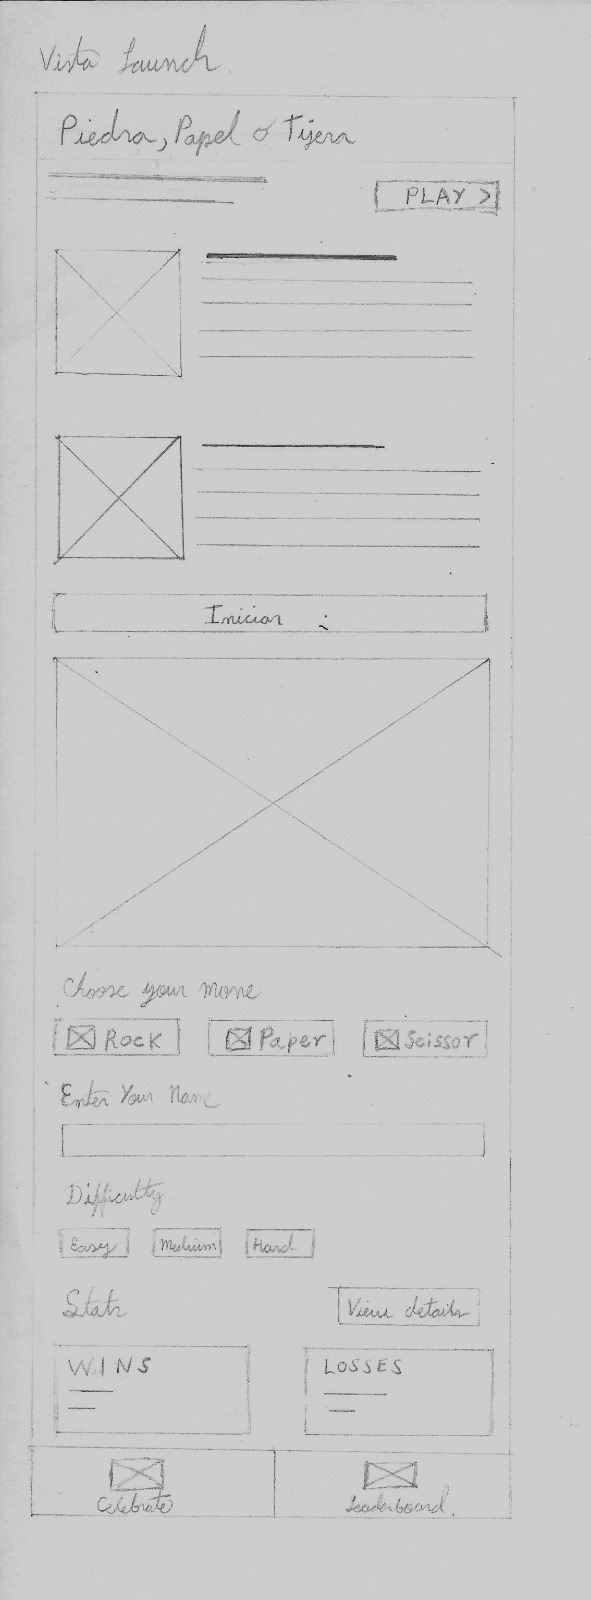 Vista Launch.
Piedra, Papel o Tijera
PLAY >
Iniciar
Choose your move
Rock Paper Scissor
Enter Your Name
Difficulty
Easy Medium Hard
Stats
View details
WINS LOSSES
Celebrate Leaderboard.